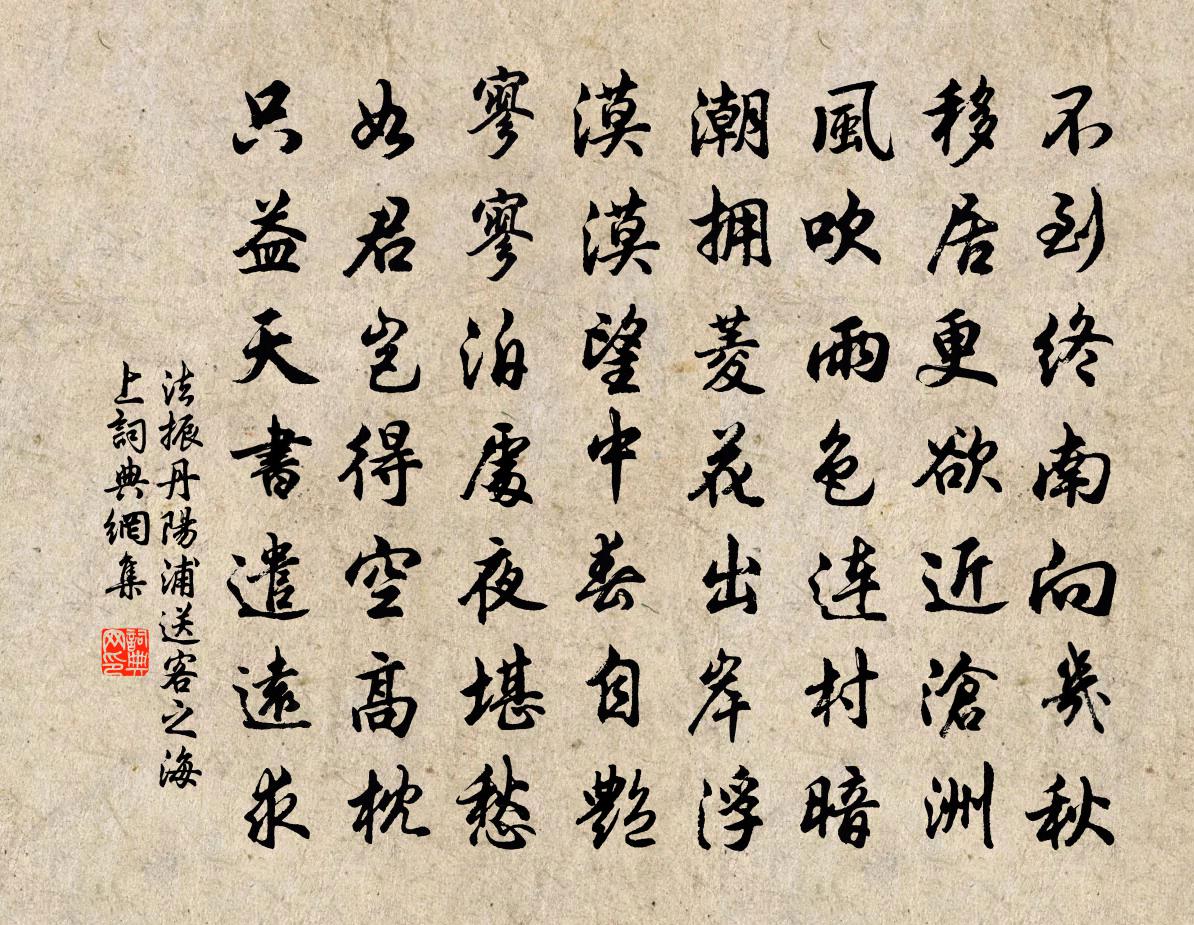 不到終南向幾秋
移居更欲近滄洲
風吹雨色連村暗
潮拥菱花出岸浮
漠漠望中春自艷
寥寥泊處夜堪愁
如君豈得空高枕
只益天書遣遠求
法振丹陽浦送客之海
上詞典網集
詞典
网印